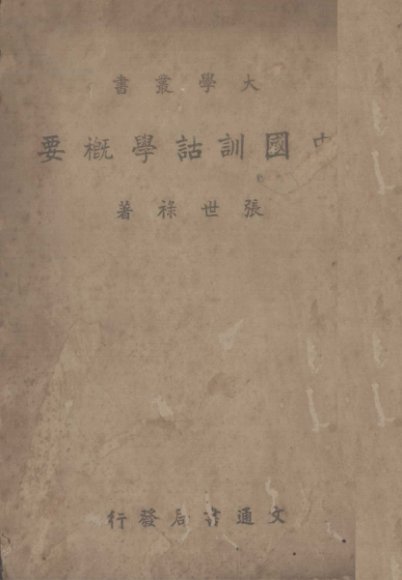 大學叢書
中國訓詁學概要
張世祿著
文通書局發行